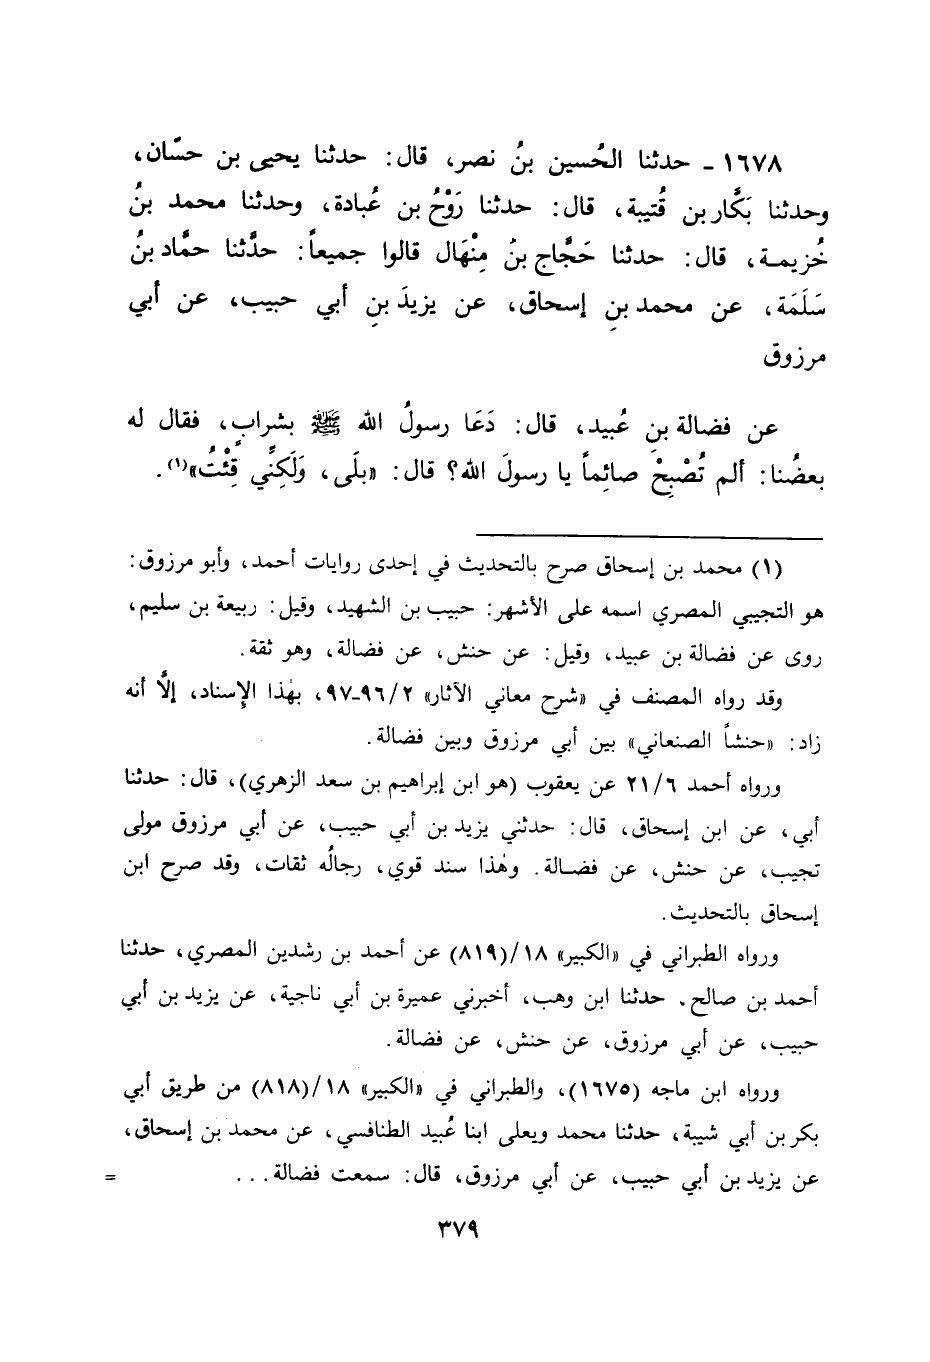 ١٦٧٨ ـ حدثنا الحُسين بنُ نصر، قال: حدثنا يحيى بن حسّان،
وحدثنا بَكَّار بن قُتيبة، قال: حدثنا رَوْحُ بن عُبادة، وحدثنا محمد بنُ
خُزيمـة، قال: حدثنا حَجَّاج بنُ مِنْهَال قالوا جميعاً: حدَّثنا حمَّاد بنُ
سَلَمَة، عن محمد بنِ إسحاق، عن يزيدَ بنِ أبي حبيب، عن أبي
مرزوق
عن فضالة بنِ عُبيد، قال: دَعَا رسولُ الله ﷺ بشرابٍ، فقال له
بعضُنا: ألم تُصْبِحْ صائِماً يا رسولَ الله؟ قال: «بلَى، وَلَكِنِّي قِئْتُ»(١).
(١) محمد بن إسحاق صرح بالتحديث في إحدى روايات أحمد، وأبو مرزوق:
هو التجيبي المصري اسمه على الأشهر: حبيب بن الشهيد، وقيل: ربيعة بن سليم،
روى عن فضالة بن عبيد، وقيل: عن حنش، عن فضالة، وهو ثقة.
وقد رواه المصنف في «شرح معاني الآثار» ٩٦/٢ـ٩٧، بهٰذا الإِسناد، إلَّا أنه
زاد: «حنشاً الصنعاني» بين أبي مرزوق وبين فضالة.
ورواه أحمد ٢١/٦ عن يعقوب (هو ابن إبراهيم بن سعد الزهري)، قال: حدثنا
أبي، عن ابن إسحاق، قال: حدثني يزيد بن أبي حبيب، عن أبي مرزوق مولى
تجيب، عن حنش، عن فضـالة. وهٰذا سند قوي، رجالُه ثقات، وقد صرح ابن
إسحاق بالتحديث.
ورواه الطبراني في «الكبير» ١٨/(٨١٩) عن أحمد بن رشدين المصري، حدثنا
أحمد بن صالح. حدثنا ابن وهب، أخبرني عميرة بن أبي ناجية، عن يزيد بن أبي
حبيب، عن أبي مرزوق، عن حنش، عن فضالة.
ورواه ابن ماجه (١٦٧٥)، والطبراني في «الكبير» ١٨/(٨١٨) من طريق أبي
بكر بن أبي شيبة، حدثنا محمد ويعلى ابنا عُبيد الطنافسي، عن محمد بن إسحاق،
عن يزيد بن أبي حبيب، عن أبي مرزوق، قال: سمعت فضالة... =
٣٧٩